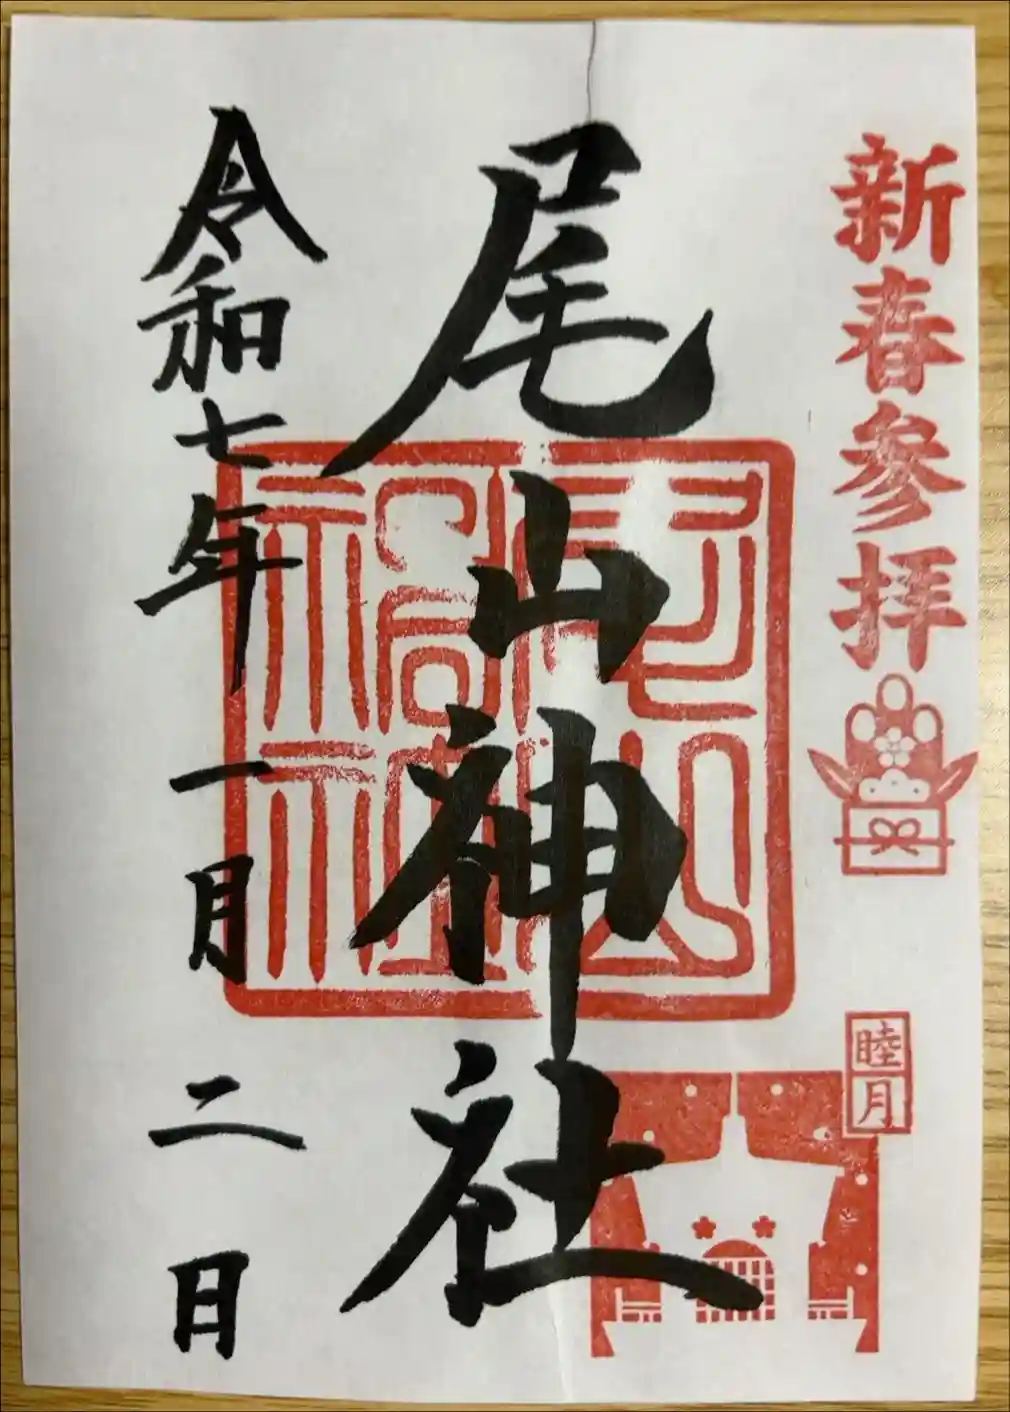 新春参拝
睦月
尾山神社
尾山神社
令和七年一月二日